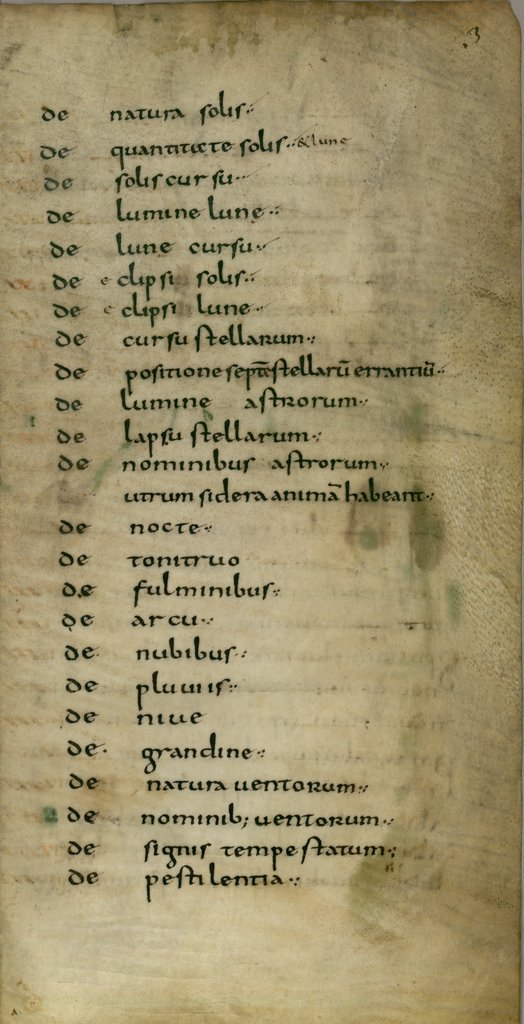 3
de natura solis
de quantitate solis & lune
de solis cursu
de lumine lune
de lune cursu
de eclipsi solis
de eclipsi lune
de cursu stellarum
de positione septē stellarū errantiū
de lumine astrorum
de lapsu stellarum
de nominibus astrorum
utrum sidera animā habeant
de nocte
de tonitruo
de fulminibus
de arcu
de nubibus
de pluuiis
de niue
de grandine
de natura uentorum
de nominib; uentorum
de signis tempestatum
de pestilentia